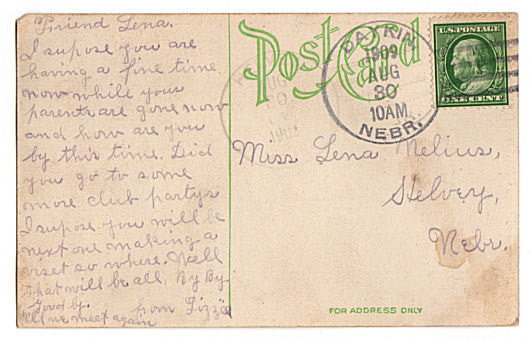 Friend Lena.
I supose you are
having a fine time
now while your
parents are gone now
and how are you
by this time. Did
you go to some
more club partys
I supose you will be
next one making a
viset so where. Well
that will be all, By By
Good by.
from Lizzie
till we meet again
Post Card
DAYKIN
1909
AUG
30
10AM
NEBR.
U.S. POSTAGE
ONE CENT
Miss Lena Nelius,
Helvey,
Nebr.
FOR ADDRESS ONLY